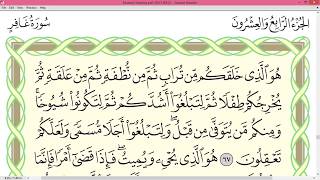 الجزء الرابع والعشرون
سورة غافر
هُوَ ٱلَّذِى خَلَقَكُم مِّن تُرَابٍ ثُمَّ مِن نُّطْفَةٍ ثُمَّ مِنْ عَلَقَةٍ ثُمَّ
يُخْرِجُكُمْ طِفْلًا ثُمَّ لِتَبْلُغُوٓا۟ أَشُدَّكُمْ ثُمَّ لِتَكُونُوا۟ شُيُوخًا ۚ
وَمِنكُم مَّن يُتَوَفَّىٰ مِن قَبْلُ ۖ وَلِتَبْلُغُوٓا۟ أَجَلًا مُّسَمًّى وَلَعَلَّكُمْ
تَعْقِلُونَ ٦٧ هُوَ ٱلَّذِى يُحْىِۦ وَيُمِيتُ ۖ فَإِذَا قَضَىٰٓ أَمْرًا فَإِنَّمَا